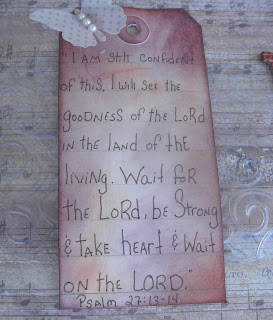 "I AM Still Confident
of this, I will See the
gooDNESS of the LoRD
IN the LAND of the
liViNG. Wait for
the LoRD, be StRoNG
& tAKE heart & Wait
oN the LORD."
Psalm 27:13-14